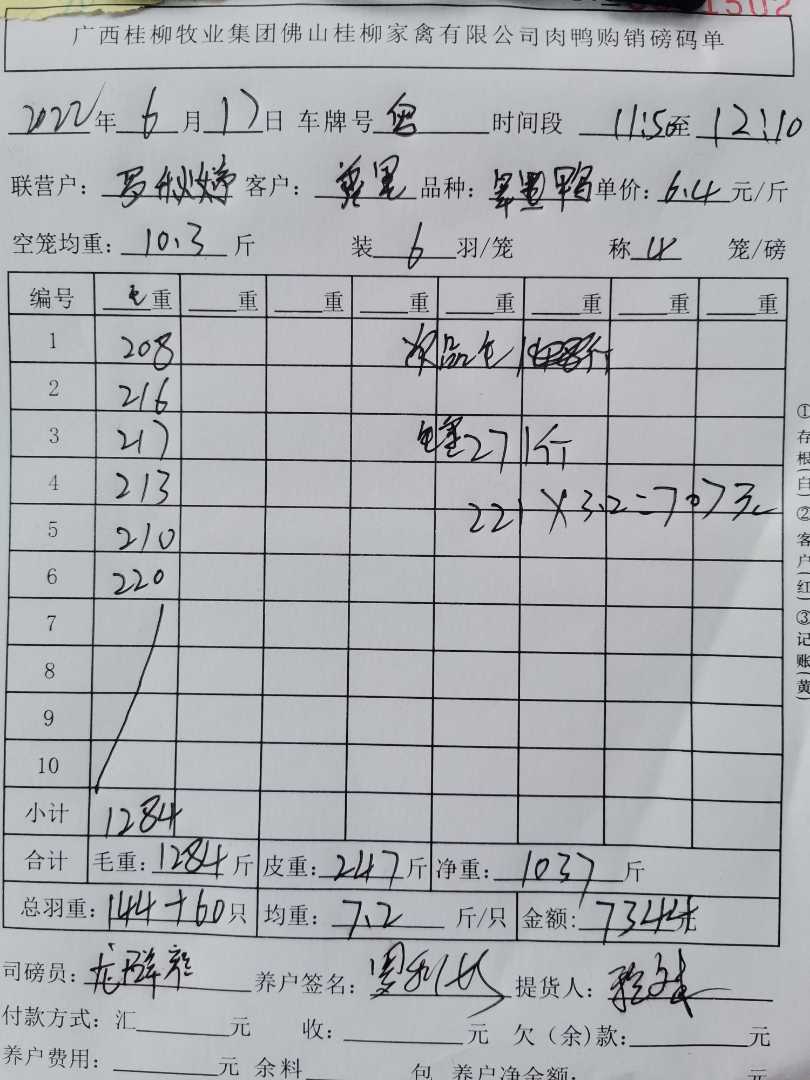 1502
广西桂柳牧业集团佛山桂柳家禽有限公司肉鸭购销磅码单
2022年6月17日 车牌号 粤 时间段 11:50至12:10
联营户： 客户： 品种： 单价：6.4元/斤
空笼均重：10.3斤 装6羽/笼 称4笼/磅
编号 毛重 重 重 重 重 重 重 重
1 208 次品毛
2 216
3 217 毛重271斤
4 213 221×3.2=707元
5 210
6 220
7
8
9
10
小计 1284
合计 毛重：1284斤 皮重：247斤 净重：1037斤
总羽重：144+60只 均重：7.2斤/只 金额：7344元
司磅员： 养户签名： 提货人：
付款方式：汇 元 收： 元 欠（余）款： 元
养户费用： 元 余料 包 养户净金额： 元
①存根(白)②客户(红)③记账(黄)